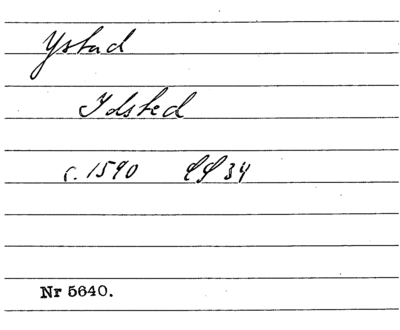 Ystad
Idsted
c. 1590 LL 34
Nr 5640.